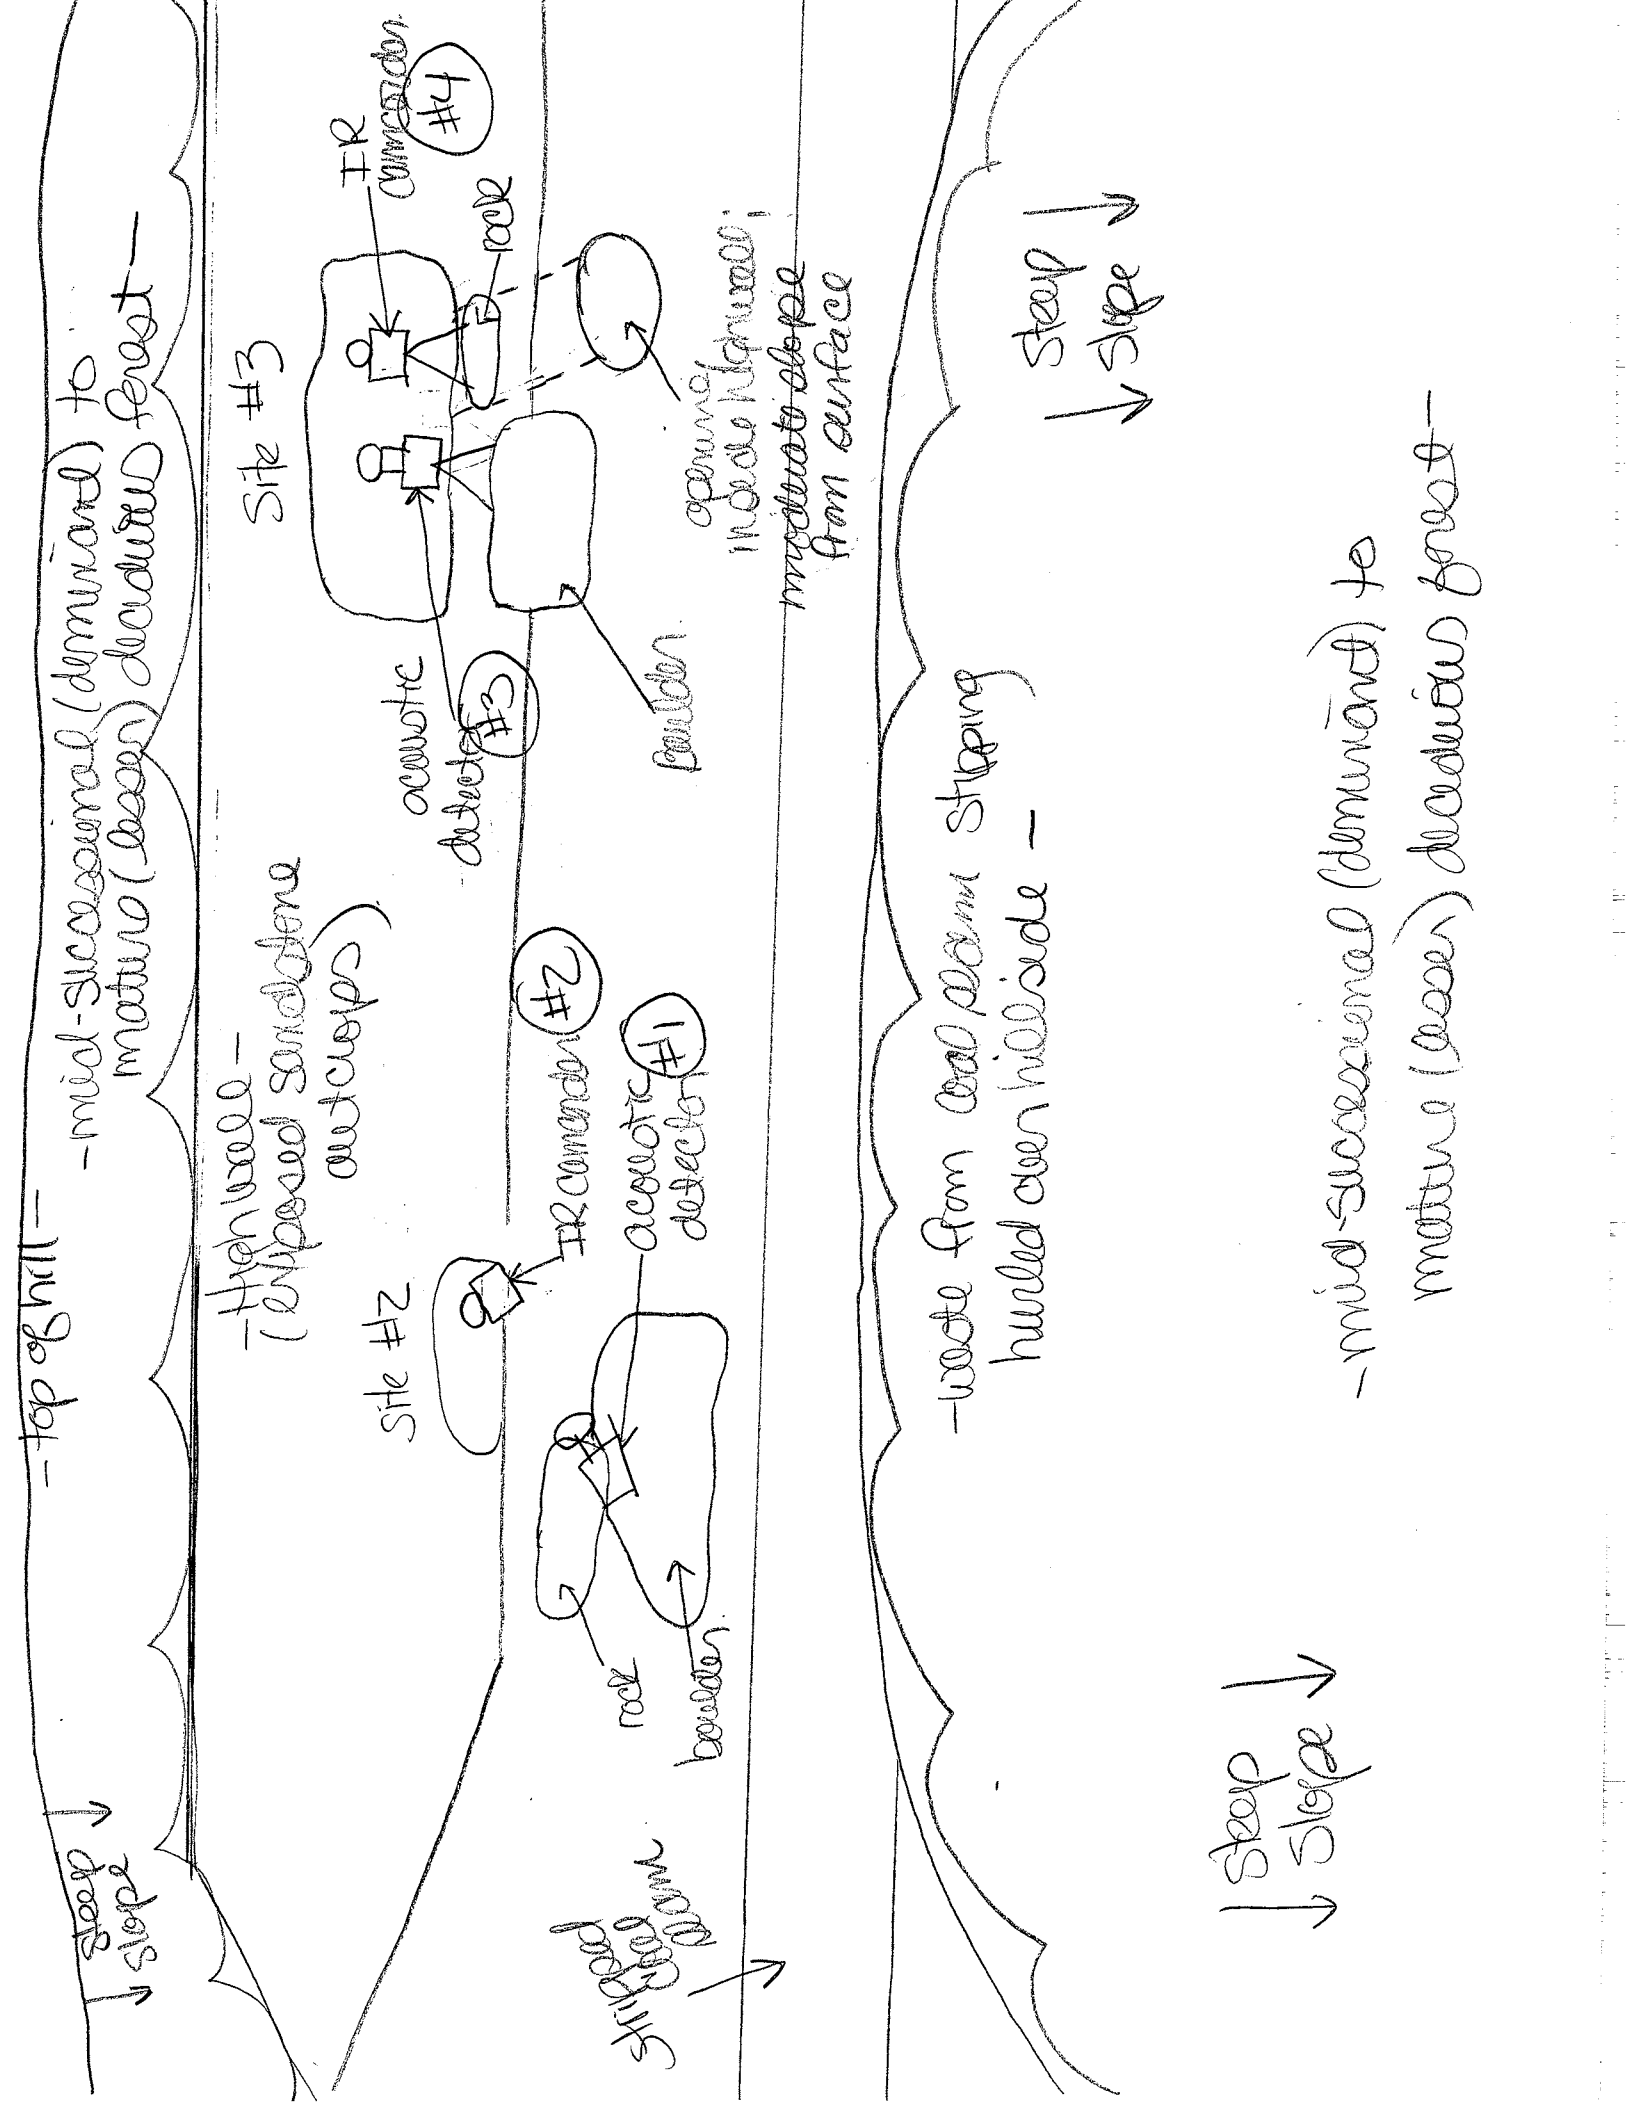 -top of hill-
-mid-successional (dominant) to
mature (lesser) deciduous forest-
↓ steep ↓
slope
-Highwall-
(exposed sandstone
outcrops)
Site #2
Site #3
IR
camcorder
#4
rock
acoustic
detector
#3
boulder
opening
inside highwall;
moderate slope
from surface
IR camcorder
#2
acoustic
detector
#1
rock
boulder
stripped
coal
seam
-waste from coal seam stripping
hurled over hillside-
Steep
Slope
Steep
Slope
-mid-successional (dominant) to
mature (lesser) deciduous forest-